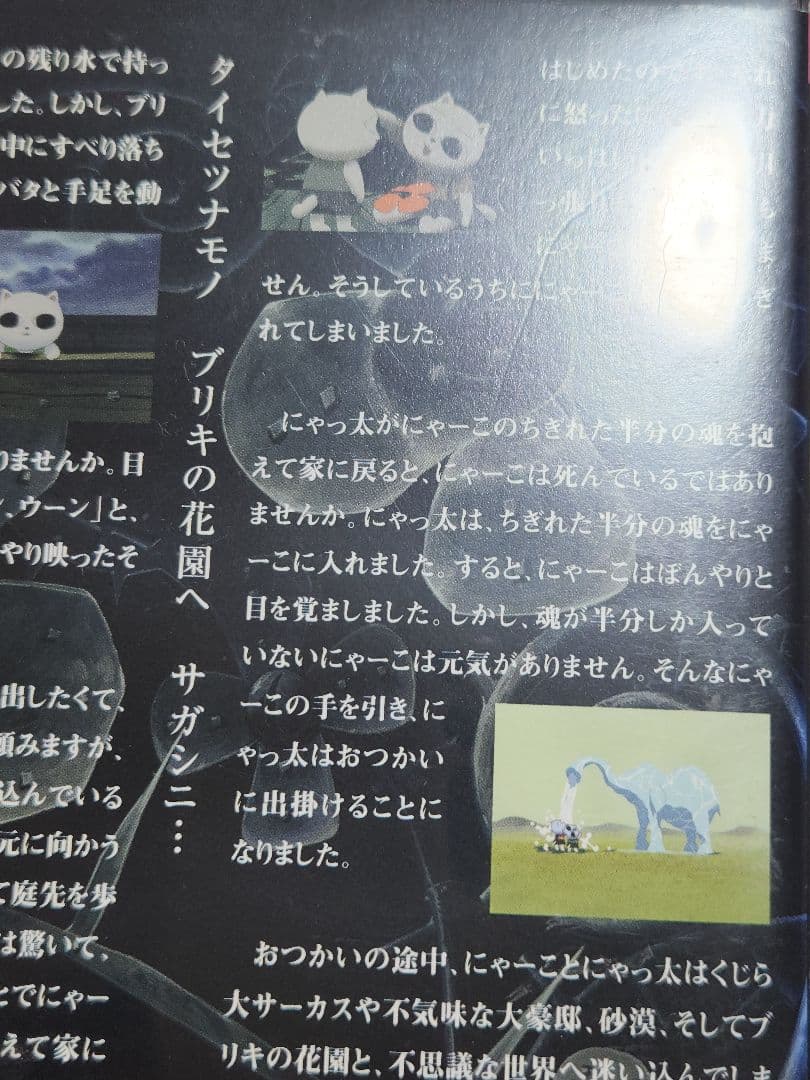 の残り水で持っ
した。しかし、ブリ
中にすべり落ち
バタと手足を動
りませんか。目
ン、ウーン」と、
やり映ったそ
出したくて、
頼みますが、
込んでいる
元に向かう
て庭先を歩
は驚いて、
とでにゃー
えて家に
タイセツナモノ ブリキの花園へ サガシニ…
はじめたのです
に怒った
いっ
にゃー
せん。そうしているうちににゃー
れてしまいました。
にゃっ太がにゃーこのちぎれた半分の魂を抱
えて家に戻ると、にゃーこは死んでいるではあり
ませんか。にゃっ太は、ちぎれた半分の魂をにゃ
ーこに入れました。すると、にゃーこはぼんやりと
目を覚ましました。しかし、魂が半分しか入って
いないにゃーこは元気がありません。そんなにゃ
ーこの手を引き、に
ゃっ太はおつかい
に出掛けることに
なりました。
おつかいの途中、にゃーことにゃっ太はくじら
大サーカスや不気味な大豪邸、砂漠、そしてブ
リキの花園と、不思議な世界へ迷い込んでしま